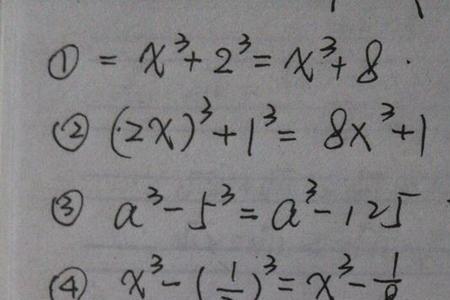 ① = x³+2³= x³+8.
② (2x)³+1³= 8x³+1
③ a³-5³=a³-125
④ x³-(1/2)³=x³-1/8